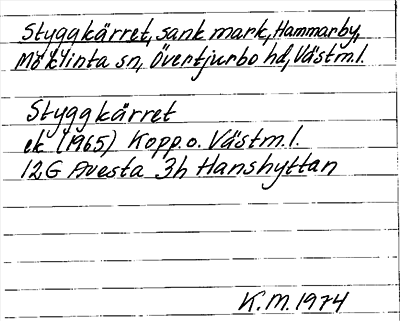 Styggkärret, sank mark, Hammarby,
Möklinta sn, Övertjurbo hd, Västm.l.
Styggkärret
ek (1965) Kopp. o. Västm.l.
12G Avesta 3h Hanshyttan
K.M. 1974